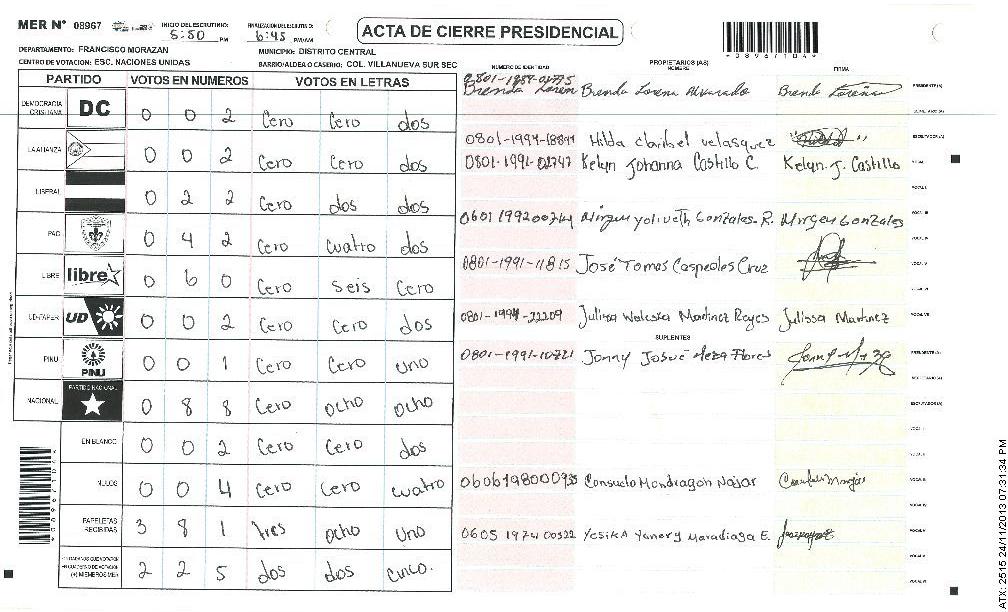 MER Nº 08967
INICIO DEL ESCRUTINIO: 5:50 PM
FINALIZACION DEL ESCRUTINIO: 6:45 PM/AM
ACTA DE CIERRE PRESIDENCIAL
*08967104*
DEPARTAMENTO: FRANCISCO MORAZAN
MUNICIPIO: DISTRITO CENTRAL
CENTRO DE VOTACION: ESC. NACIONES UNIDAS
BARRIO/ALDEA O CASERIO: COL. VILLANUEVA SUR SEC
PARTIDO VOTOS EN NUMEROS VOTOS EN LETRAS
DEMOCRACIA CRISTIANA DC 0 0 2 Cero Cero dos
LA ALIANZA 0 0 2 Cero Cero dos
LIBERAL 0 2 2 Cero dos dos
PAC 0 4 2 Cero cuatro dos
LIBRE libre 0 6 0 Cero seis Cero
UD-FAPER UD 0 0 2 Cero Cero dos
PINU PINU 0 0 1 Cero Cero uno
NACIONAL PARTIDO NACIONAL 0 8 8 Cero ocho ocho
EN BLANCO 0 0 2 Cero Cero dos
NULOS 0 0 4 Cero Cero cuatro
PAPELETAS RECIBIDAS 3 8 1 tres ocho uno
CIUDADANOS QUE VOTARON EN CUADERNO DE VOTACION (+) MIEMBROS MER 2 2 5 dos dos cinco.
NUMERO DE IDENTIDAD PROPIETARIOS (AS) NOMBRE FIRMA
Brenda Loren Brenda Lorena Alvarado Brenda Lorena PRESIDENTE(A)
SECRETARIO(A)
Hilda claribel velasquez ESCRUTADOR(A)
Kelyn Johanna Castillo C. Kelyn. J. Castillo
Gonzales. R. Mirgen Gonzales
0801-1991-11815 José Tomas Cruz
Julissa Waleska Martinez Reyes Julissa Martinez
SUPLENTES
0801-1991-10721 Jonny Josué Meza Flores PRESIDENTE(A)
SECRETARIO(A)
ESCRUTADOR(A)
Consuelo Mondragon Najar
0605 1974 00522 Yesika Maradiaga E.
*08967104*
ATX: 2515 24/11/2013 07:31:34 PM